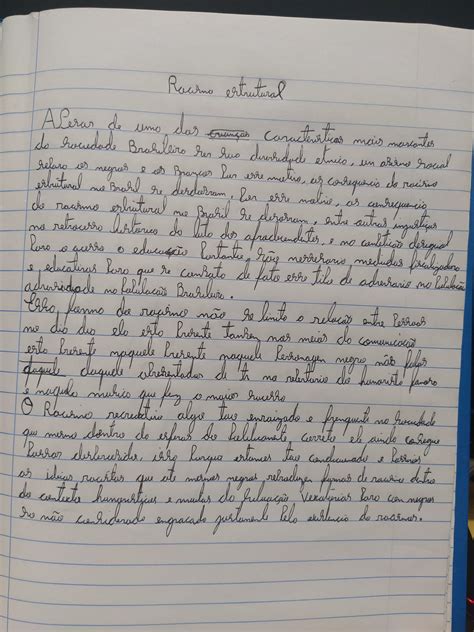 Racismo estrutural
APesar de uma das crianças características mais marcantes
da sociedade Brasileira ser sua diversidade etnica, um abismo social
separa os negros e os Brancos Por esse motivo, as consequencia do racismo
estrutural no Brasil se desdobram, Por esse motivo, as consequencia
do racismo estrutural no Brasil se desdobram, entre outras injustiças
no retrocesso historico da luta dos afrodecendentes, e na condição desigual
Para o acesso a educação Portanto, são necessario medidas
e educativas Para que se combata de fato esse tipo de na População
na População Brasileira.
Essa forma de racismo não se limita a relação entre Pessoas
no dia dia ela esta Presente tambem nos meios de comunicação
esta Presente naquele Presente naquele Personagem negro não falas
daquele daquele apresentador de tv no
e naquela musica que faz o maior sucesso
O Racismo recreativo algo tao enraizado e frenquente na sociedade
que mesmo dentro da esferas da Politicamente, correta ele ainda consegue
Passar desPercebido, isso Porque estamos tao condicionado e
as idéias racistas que ate mesmos negros reProduzem formas de racismo dentro
do contexto e muitas da Situação Para com negros
so não considerado engraçado justamente Pela existencia do racismo.